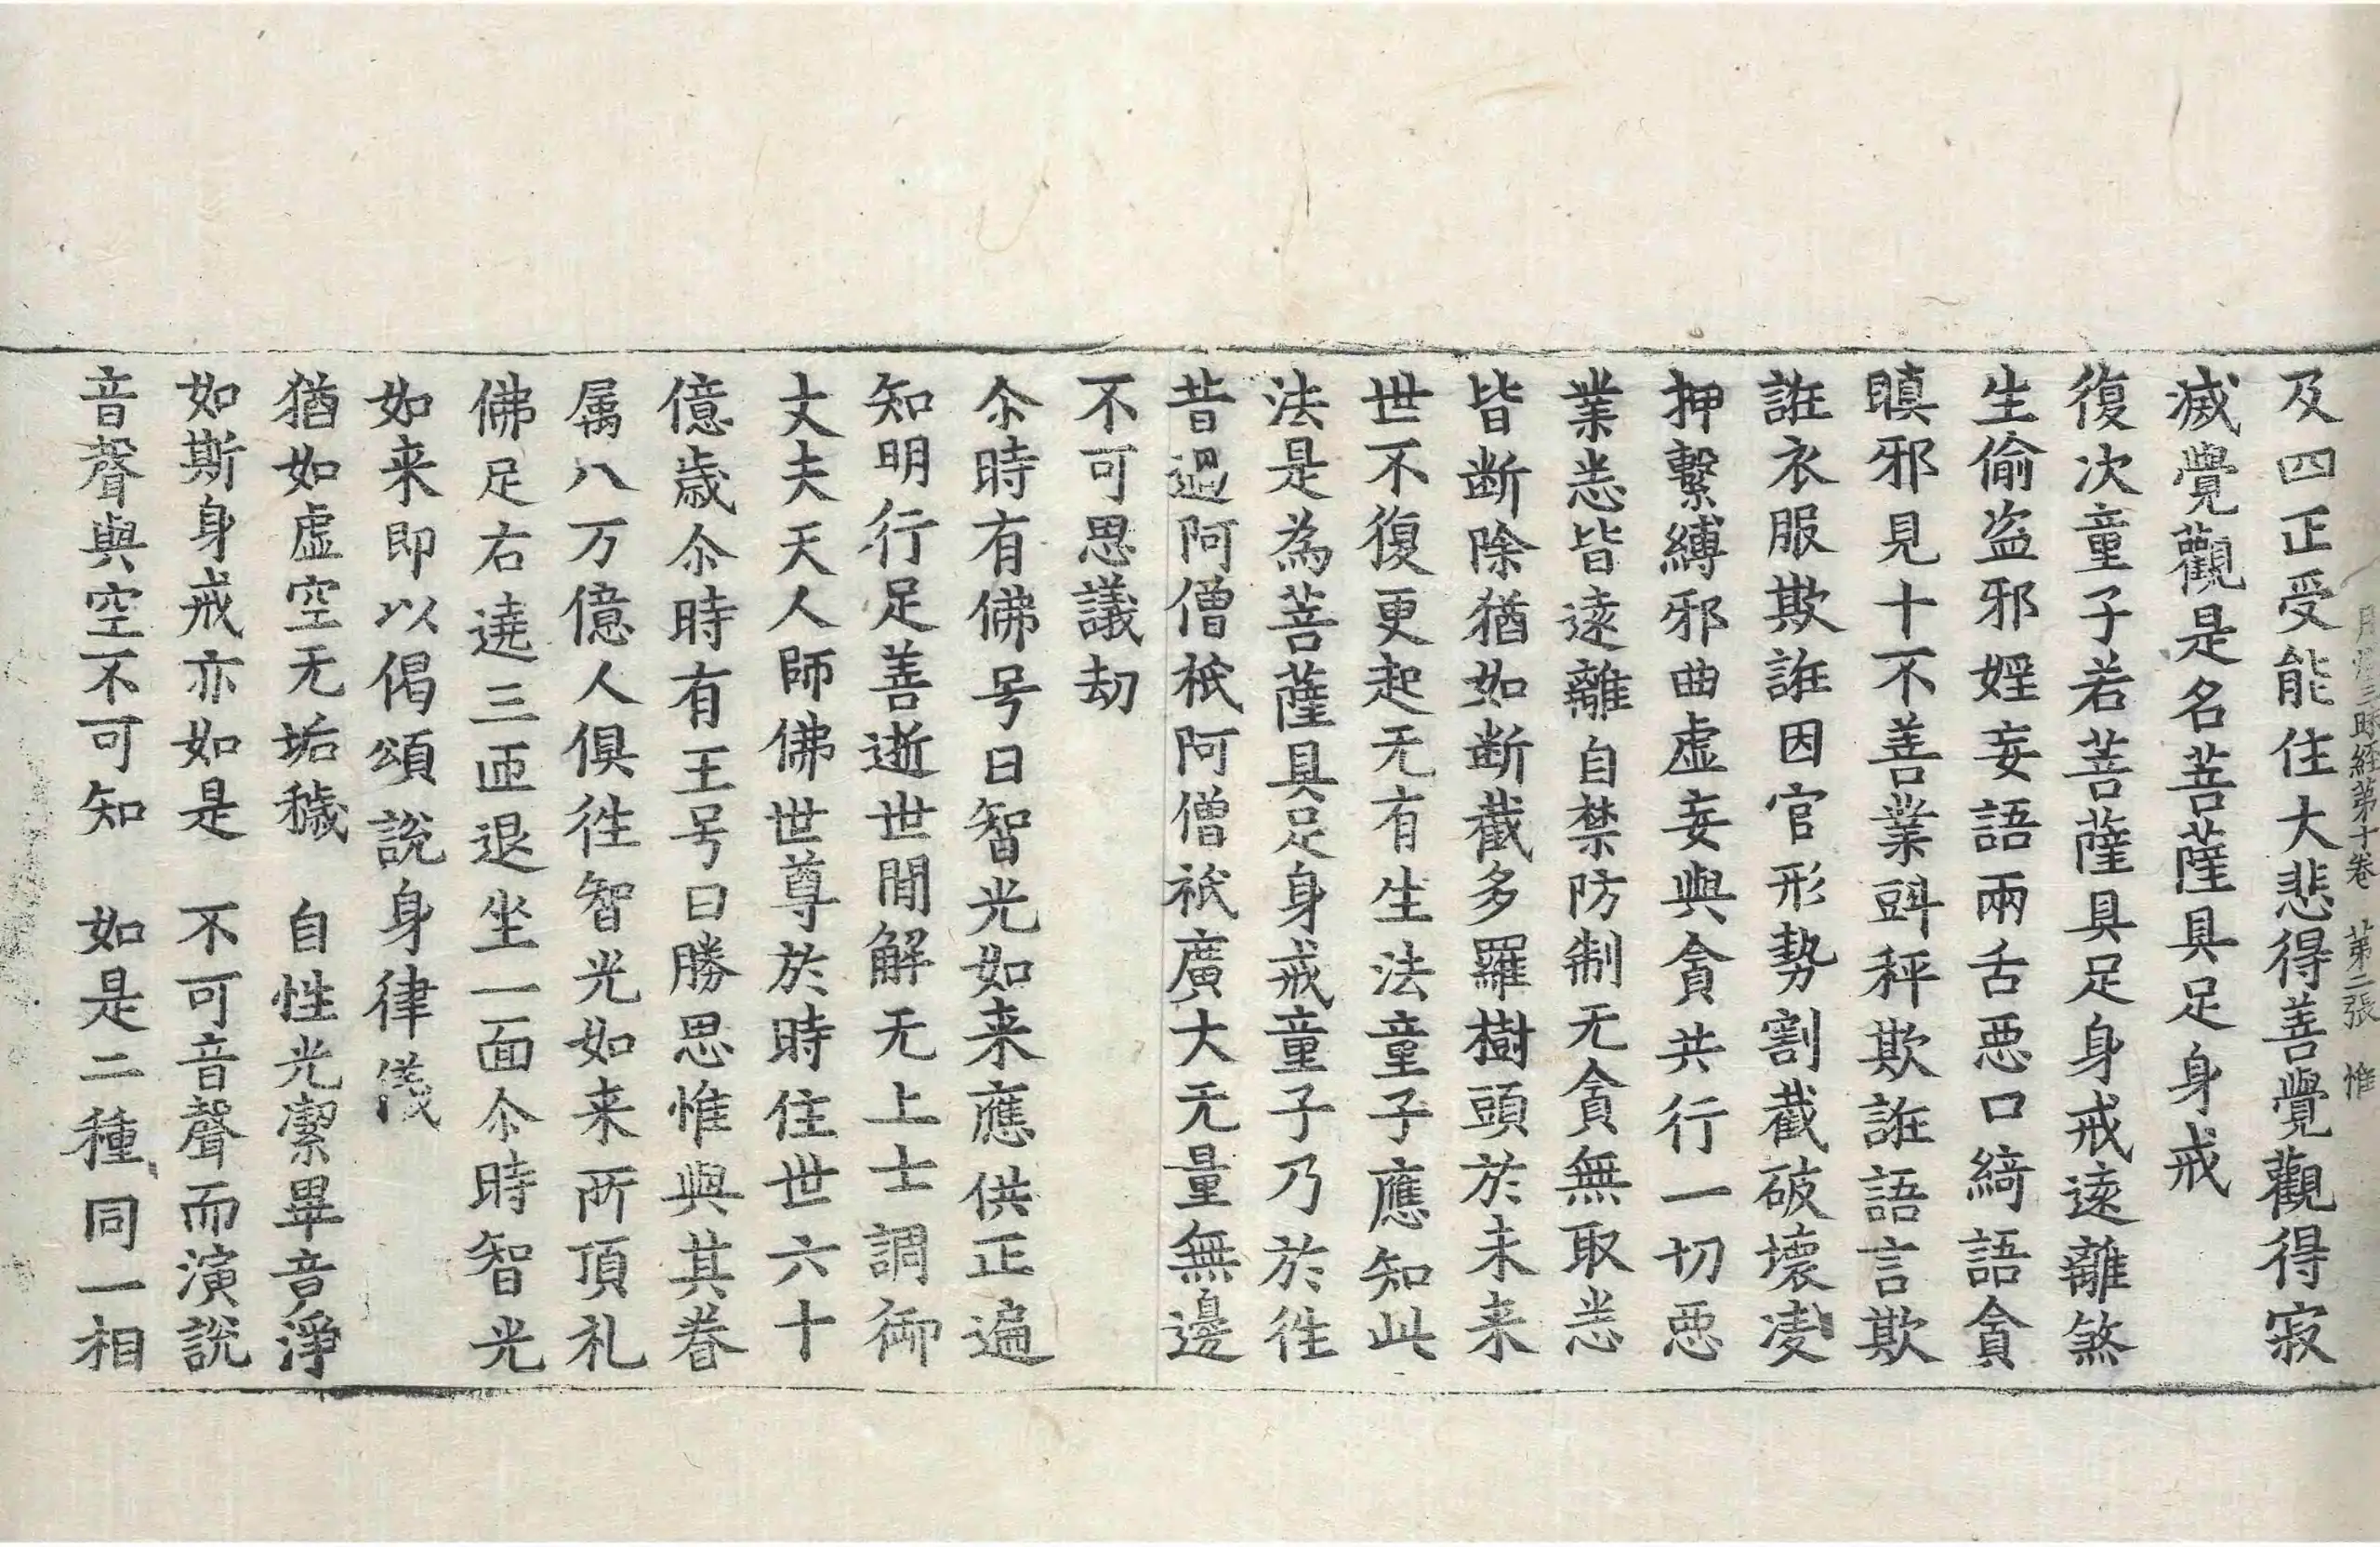 月燈三昧經第十卷 第二張 惟
及四正受能住大悲得善覺觀得寂
滅覺觀是名菩薩具足身戒
復次童子若菩薩具足身戒遠離煞
生偷盗邪婬妄語兩舌惡口綺語貪
瞋邪見十不善業㪷秤欺誑語言欺
誑衣服欺誑因官形勢割截破壞凌
押繫縛邪曲虚妄與貪共行一切惡
業悉皆遠離自禁防制无貪無取悉
皆断除猶如断截多羅樹頭於未来
世不復更起无有生法童子應知此
法是為菩薩具足身戒童子乃於徃
昔過阿僧祇阿僧祇廣大无量無邊
不可思議劫
尒時有佛号曰智光如来應供正遍
知明行足善逝世間解无上士調御
丈夫天人師佛世尊於時住世六十
億歲尒時有王号曰勝思惟與其眷
属八万億人俱徃智光如来所頂礼
佛足右遶三匝退坐一面尒時智光
如来即以偈頌說身律儀
猶如虚空无垢穢 自性光潔畢音淨
如斯身戒亦如是 不可音聲而演說
音聲與空不可知 如是二種同一相